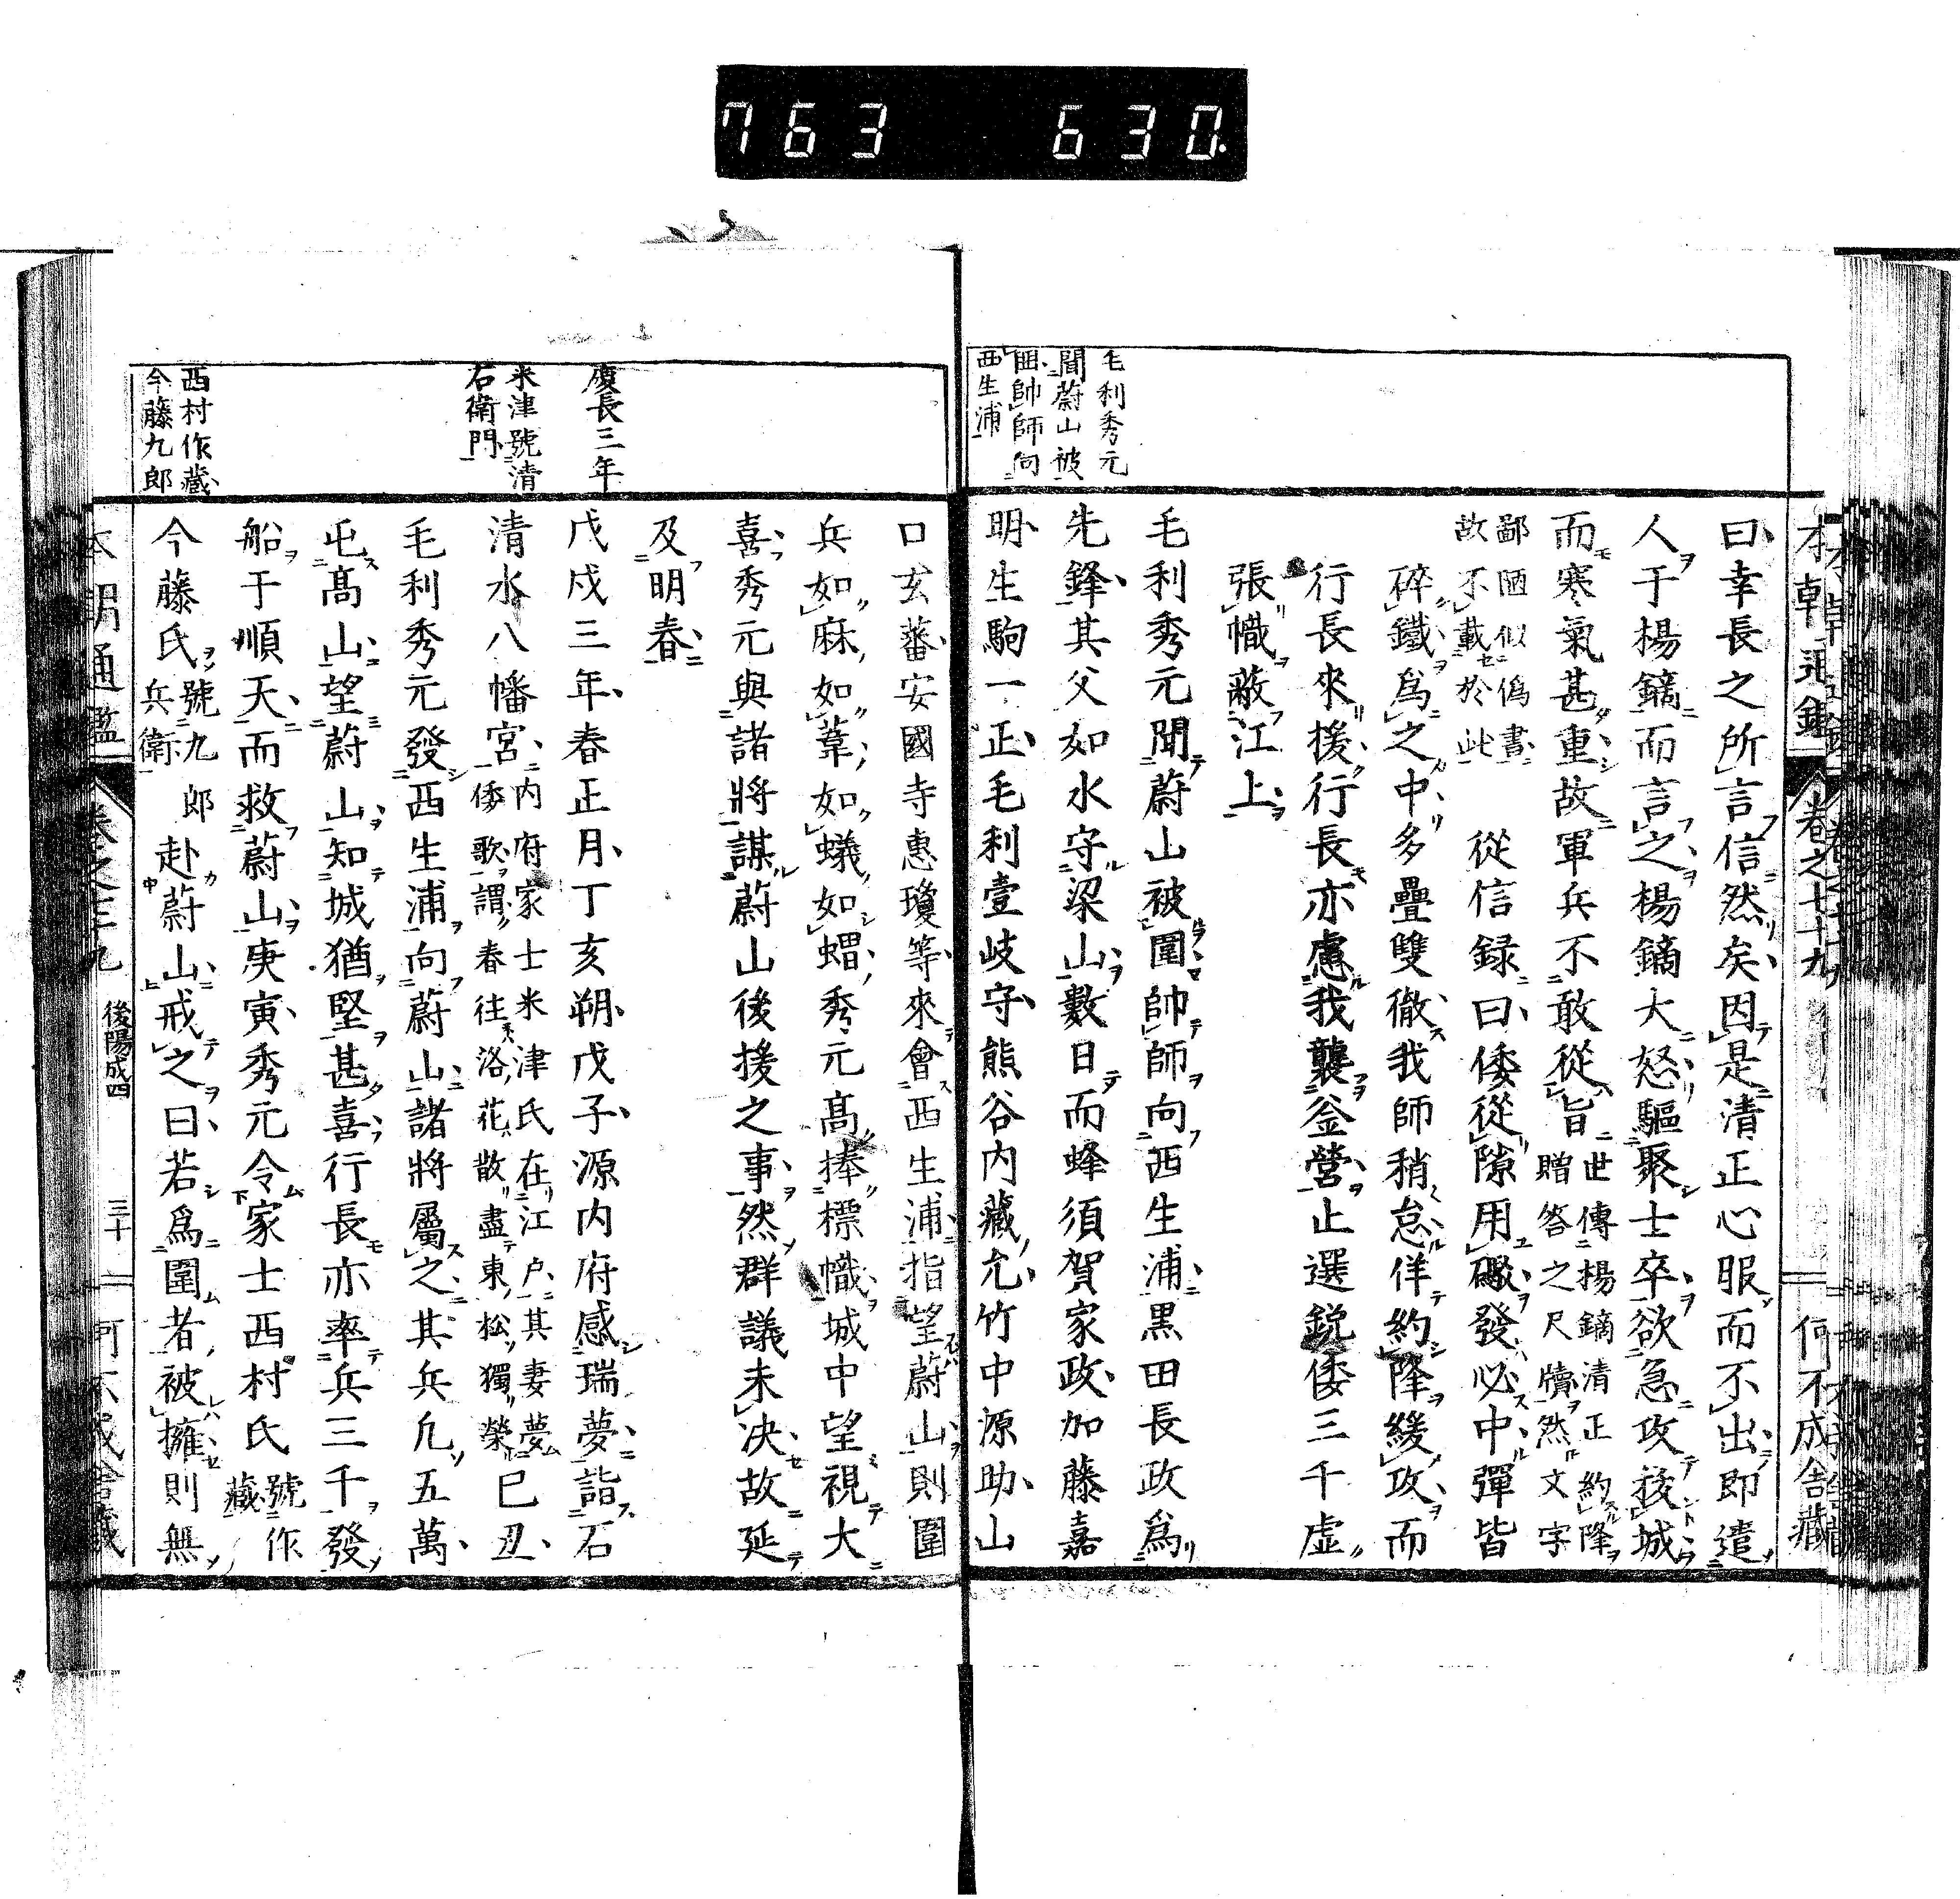 763 630.
本朝通鑑 卷之七十九 何不成舍藏
毛利秀元
聞蔚山被
圍帥師向
西生浦
曰幸長之所言信然矣因是清正心服而不出即遣
人于楊鎬而言之楊鎬大怒驅聚士卒欲急攻後城
而寒氣甚重故軍兵不敢從旨世傳楊鎬清正約降
贈答之尺牘然文字
鄙陋似僞書
故不載於此 從信録曰倭從隙用礮發必中彈皆
碎鐵爲之中多疊雙徹我師稍怠佯約降緩攻而
行長來援行長亦慮我襲釜營止選鋭倭三千虚
張幟蔽江上
毛利秀元聞蔚山被圍帥師向西生浦黒田長政爲
先鋒其父如水守梁山數日而蜂須賀家政加藤嘉
明生駒一正毛利壹岐守熊谷内藏允竹中源助山
口玄蕃安國寺惠瓊等來會西生浦指望蔚山則圍
兵如麻如葦如蟻如蝟秀元髙捧標幟城中望視大
喜秀元與諸將謀蔚山後援之事然群議未决故延
及明春
慶長三年
戊戌三年春正月丁亥朔戊子源内府感瑞夢詣石
米津號清
右衛門
清水八幡宮内府家士米津氏在江戸其妻夢
倭歌謂春往洛花散盡東松獨榮 己丑
毛利秀元發西生浦向蔚山諸將屬之其兵凢五萬
屯髙山望蔚山知城猶堅甚喜行長亦率兵三千發
船于順天而救蔚山庚寅秀元令家士西村氏號作
藏
西村作藏
今藤九郎
今藤氏號九郎
兵衛 赴蔚山戒之曰若爲圍者被擁則無
本朝通鑑 卷之七十九 後陽成四 三十 何不成舍藏